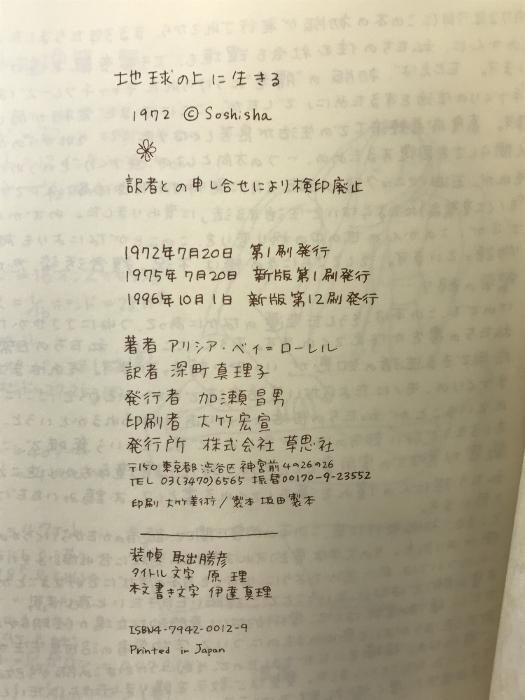 地球の上に生きる
1972 © Soshisha
訳者との申し合せにより検印廃止
1972年7月20日 第1刷発行
1975年7月20日 新版第1刷発行
1996年10月1日 新版第12刷発行
著者 アリシア・ベイ=ローレル
訳者 深町真理子
発行者 加瀬昌男
印刷者 大竹宏宣
発行所 株式会社 草思社
〒150 東京都渋谷区神宮前4の26の26
TEL 03(3470)6565 振替00170-9-23552
印刷 大竹美術/製本 坂田製本
装幀 取出勝彦
タイトル文字 原 理
本文書き文字 伊達真理
ISBN4-7942-0012-9
Printed in Japan